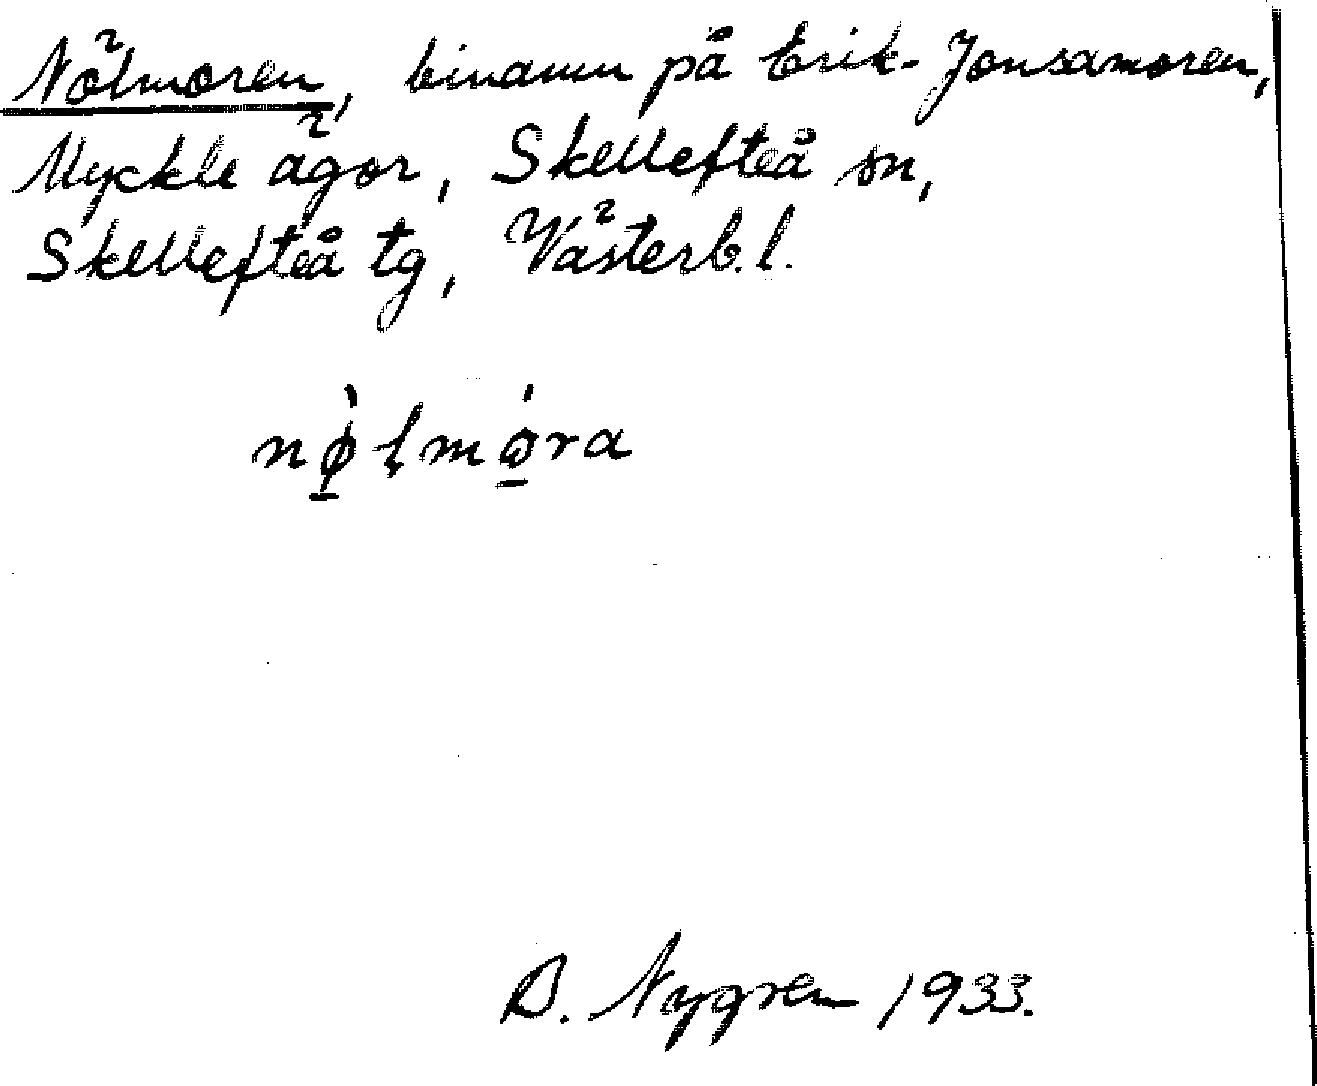 Nölmoren, binamn på Erik-Jonsamoren,
Myckle ägor, Skellefteå sn,
Skellefteå tg, Västerb. l.
nø̀lmóra
B. Nygren 1933.